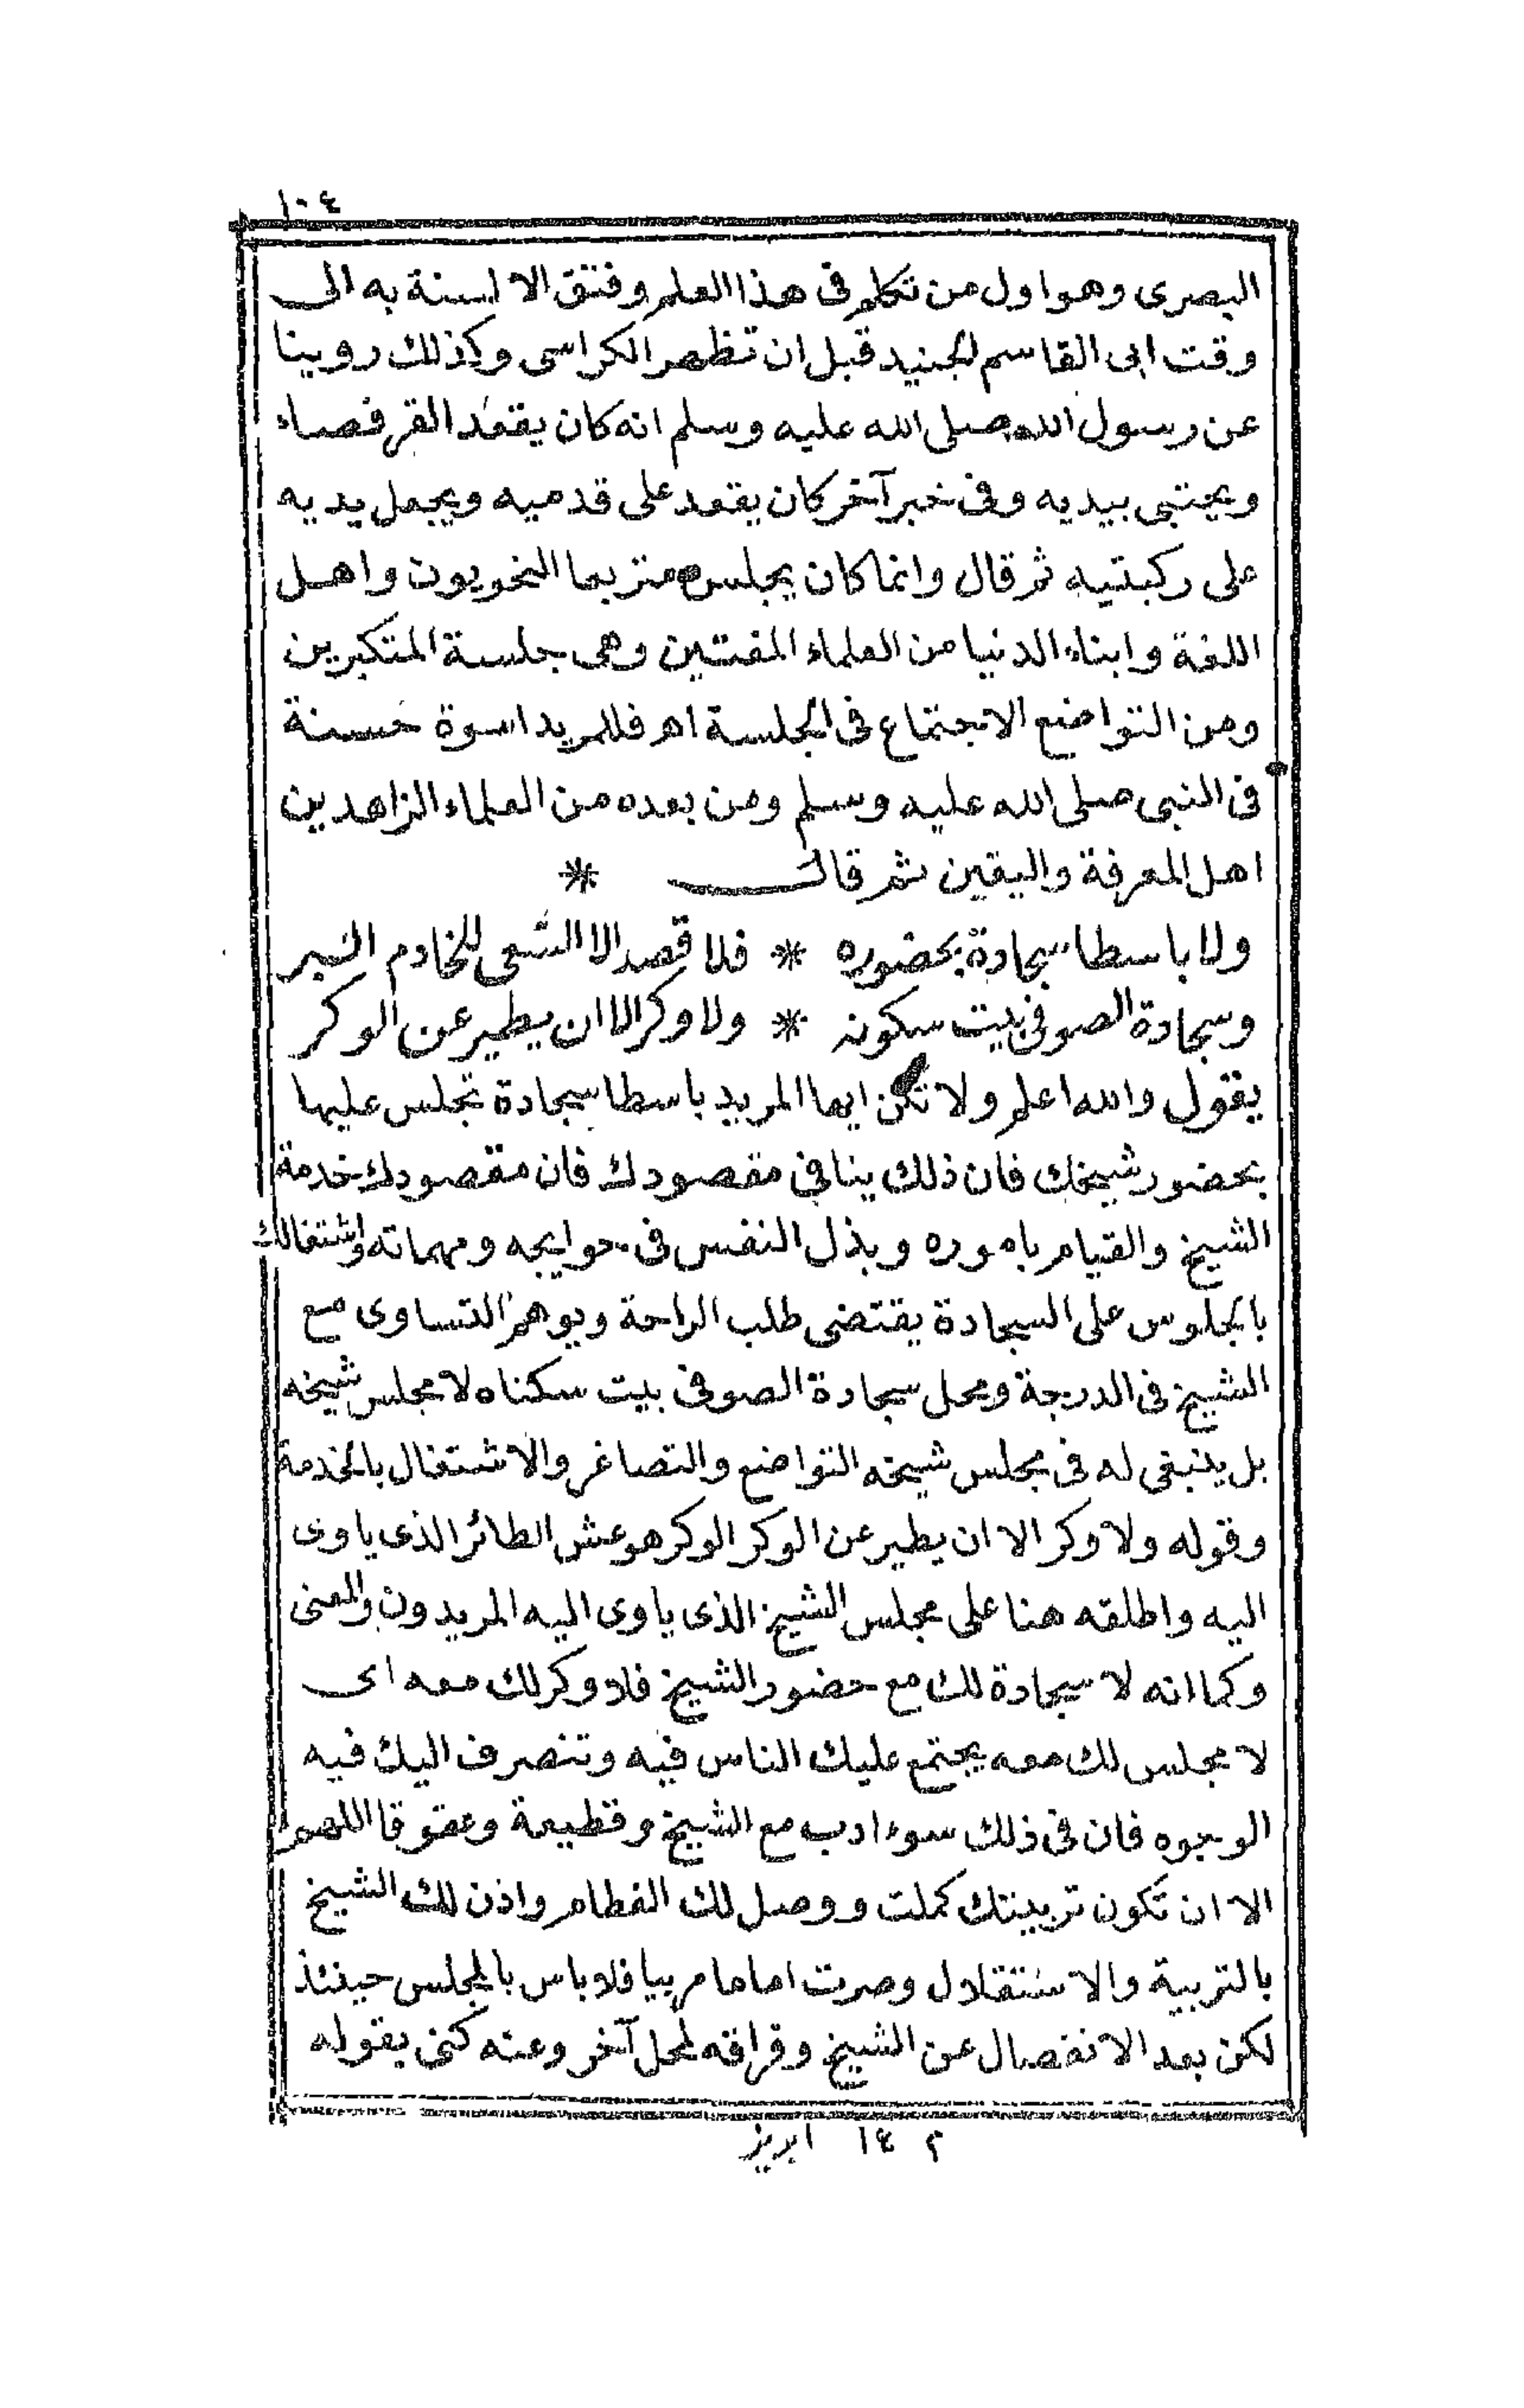 ١٠٤
البصرى وهو اول من تكلم فى هذا العلم وفتق الالسنة به الى
وقت ابى القاسم الجنيد قبل ان تظهر الكراسى وكذلك روينا
عن رسول الله صلى الله عليه وسلم انه كان يقعد القرفصاء
ويحتبى بيديه وفى خبر آخر كان يقعد على قدميه ويجعل يديه
على ركبتيه ثم قال وانما كان يجلس متربعا النحويون واهل
اللغة وابناء الدنيا من العلماء المفتين وهى جلسة المتكبرين
ومن التواضع الاجتماع فى الجلسة اهـ فللمريد اسوة حسنة
فى النبى صلى الله عليه وسلم ومن بعده من العلماء الزاهدين
اهل المعرفة واليقين ثم قال *
ولا باسطا سجادة بحضوره * فلا قصد الا السعى للخادم البر
وسجادة الصوفى بيت سكونه * ولا وكر الا ان يطير عن الوكر
يقول والله اعلم ولا تكن ايها المريد باسطا سجادة تجلس عليها
بحضور شيخك فان ذلك ينافى مقصودك فان مقصودك خدمة
الشيخ والقيام باموره وبذل النفس فى حوايجه ومهماته واشتغالك
بالجلوس على السجادة يقتضى طلب الراحة ويوهم التساوى مع
الشيخ فى الدرجة ومحل سجادة الصوفى بيت سكناه لا مجلس شيخه
بل ينبغى له فى مجلس شيخه التواضع والتصاغر والاشتغال بالخدمة
وقوله ولا وكر الا ان يطير عن الوكر الوكر هو عش الطائر الذى ياوى
اليه واطلقه هنا على مجلس الشيخ الذى ياوى اليه المريدون والمعنى
وكما انه لا سجادة لك مع حضور الشيخ فلا وكر لك معه اى
لا مجلس لك معه يجتمع عليك الناس فيه وتنصرف اليك فيه
الوجوه فان فى ذلك سوء ادب مع الشيخ وقطيعة وعقوقا اللهم
الا ان تكون تربيتك كملت ووصل لك الفطام واذن لك الشيخ
بالتربية والاستقلال وصرت اماما مربيا فلا باس بالمجلس حينئذ
لكن بعد الانفصال عن الشيخ وفراقه لمحل آخر وعنه كنى بقوله
٢ ١٤ ابريز